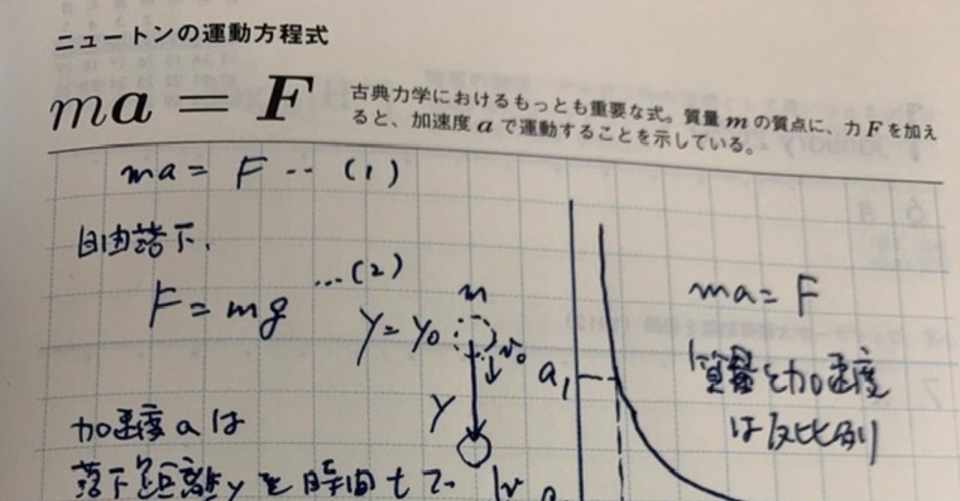 ニュートンの運動方程式
ma = F
古典力学におけるもっとも重要な式。質量 m の質点に、力 F を加え
ると、加速度 a で運動することを示している。
ma = F ‥ (1)
自由落下.
F = mg …(2)
m
y = y₀
v₀
y
加速度 a は
落下距離 y を時間 t で
v
a₁
ma = F
質量と加速度
は反比例